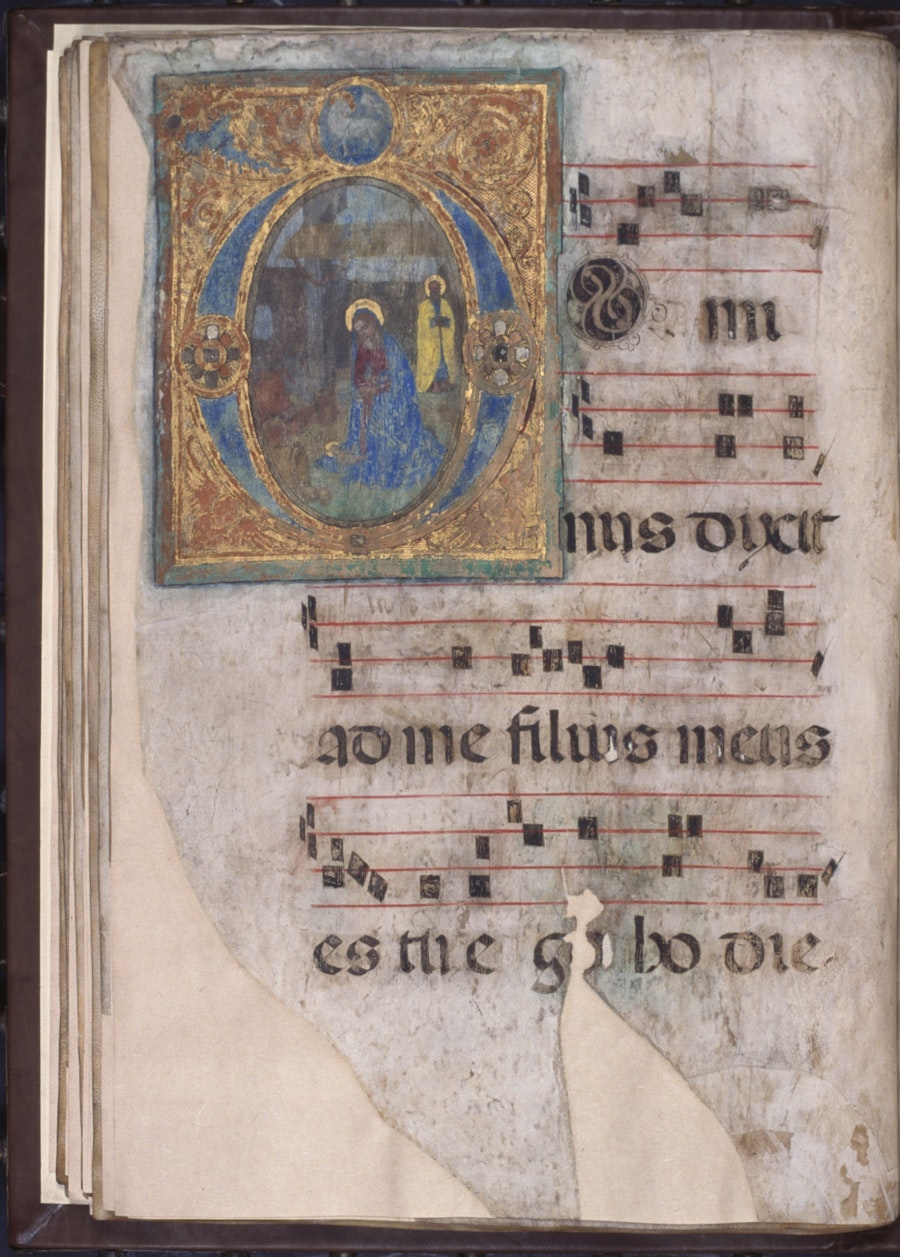 DO mi
nus dixit
ad me filius meus
es tu e go ho die